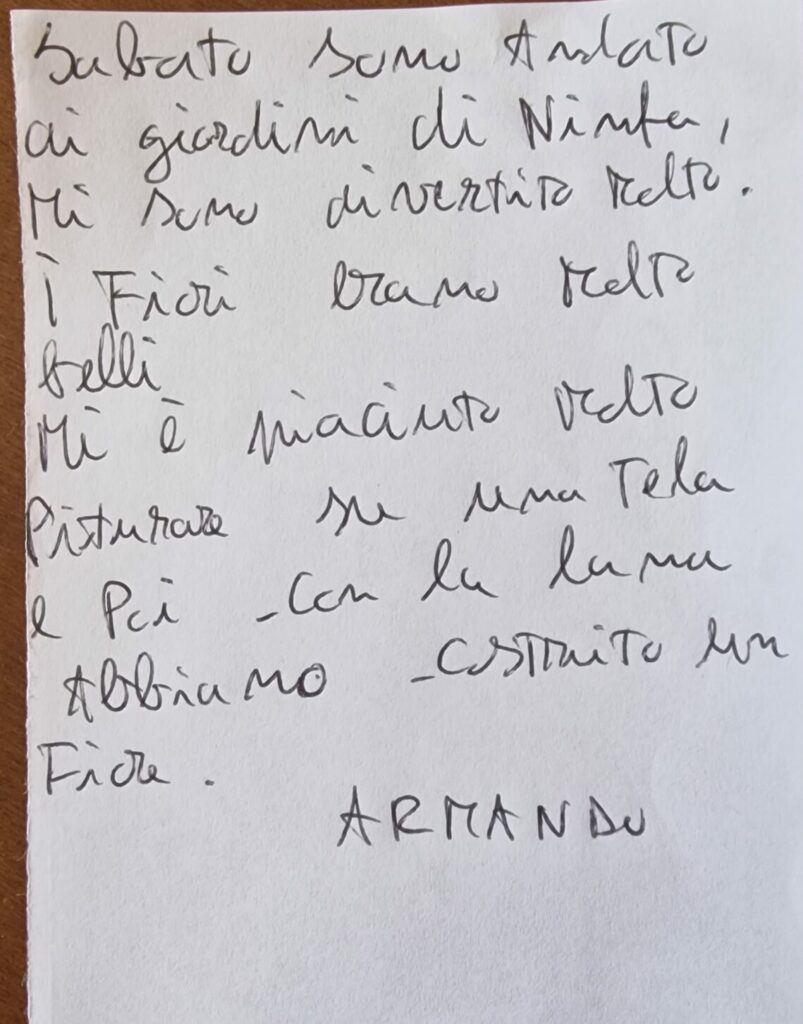 Sabato sono Andato
ai giardini di Ninfa,
Mi sono divertito Molto.
i Fiori erano Molto
belli
Mi è piaciuto Molto
Pisturare su una Tela
e Poi con la lana
Abbiamo costruito un
Fiore.
ARMANDO